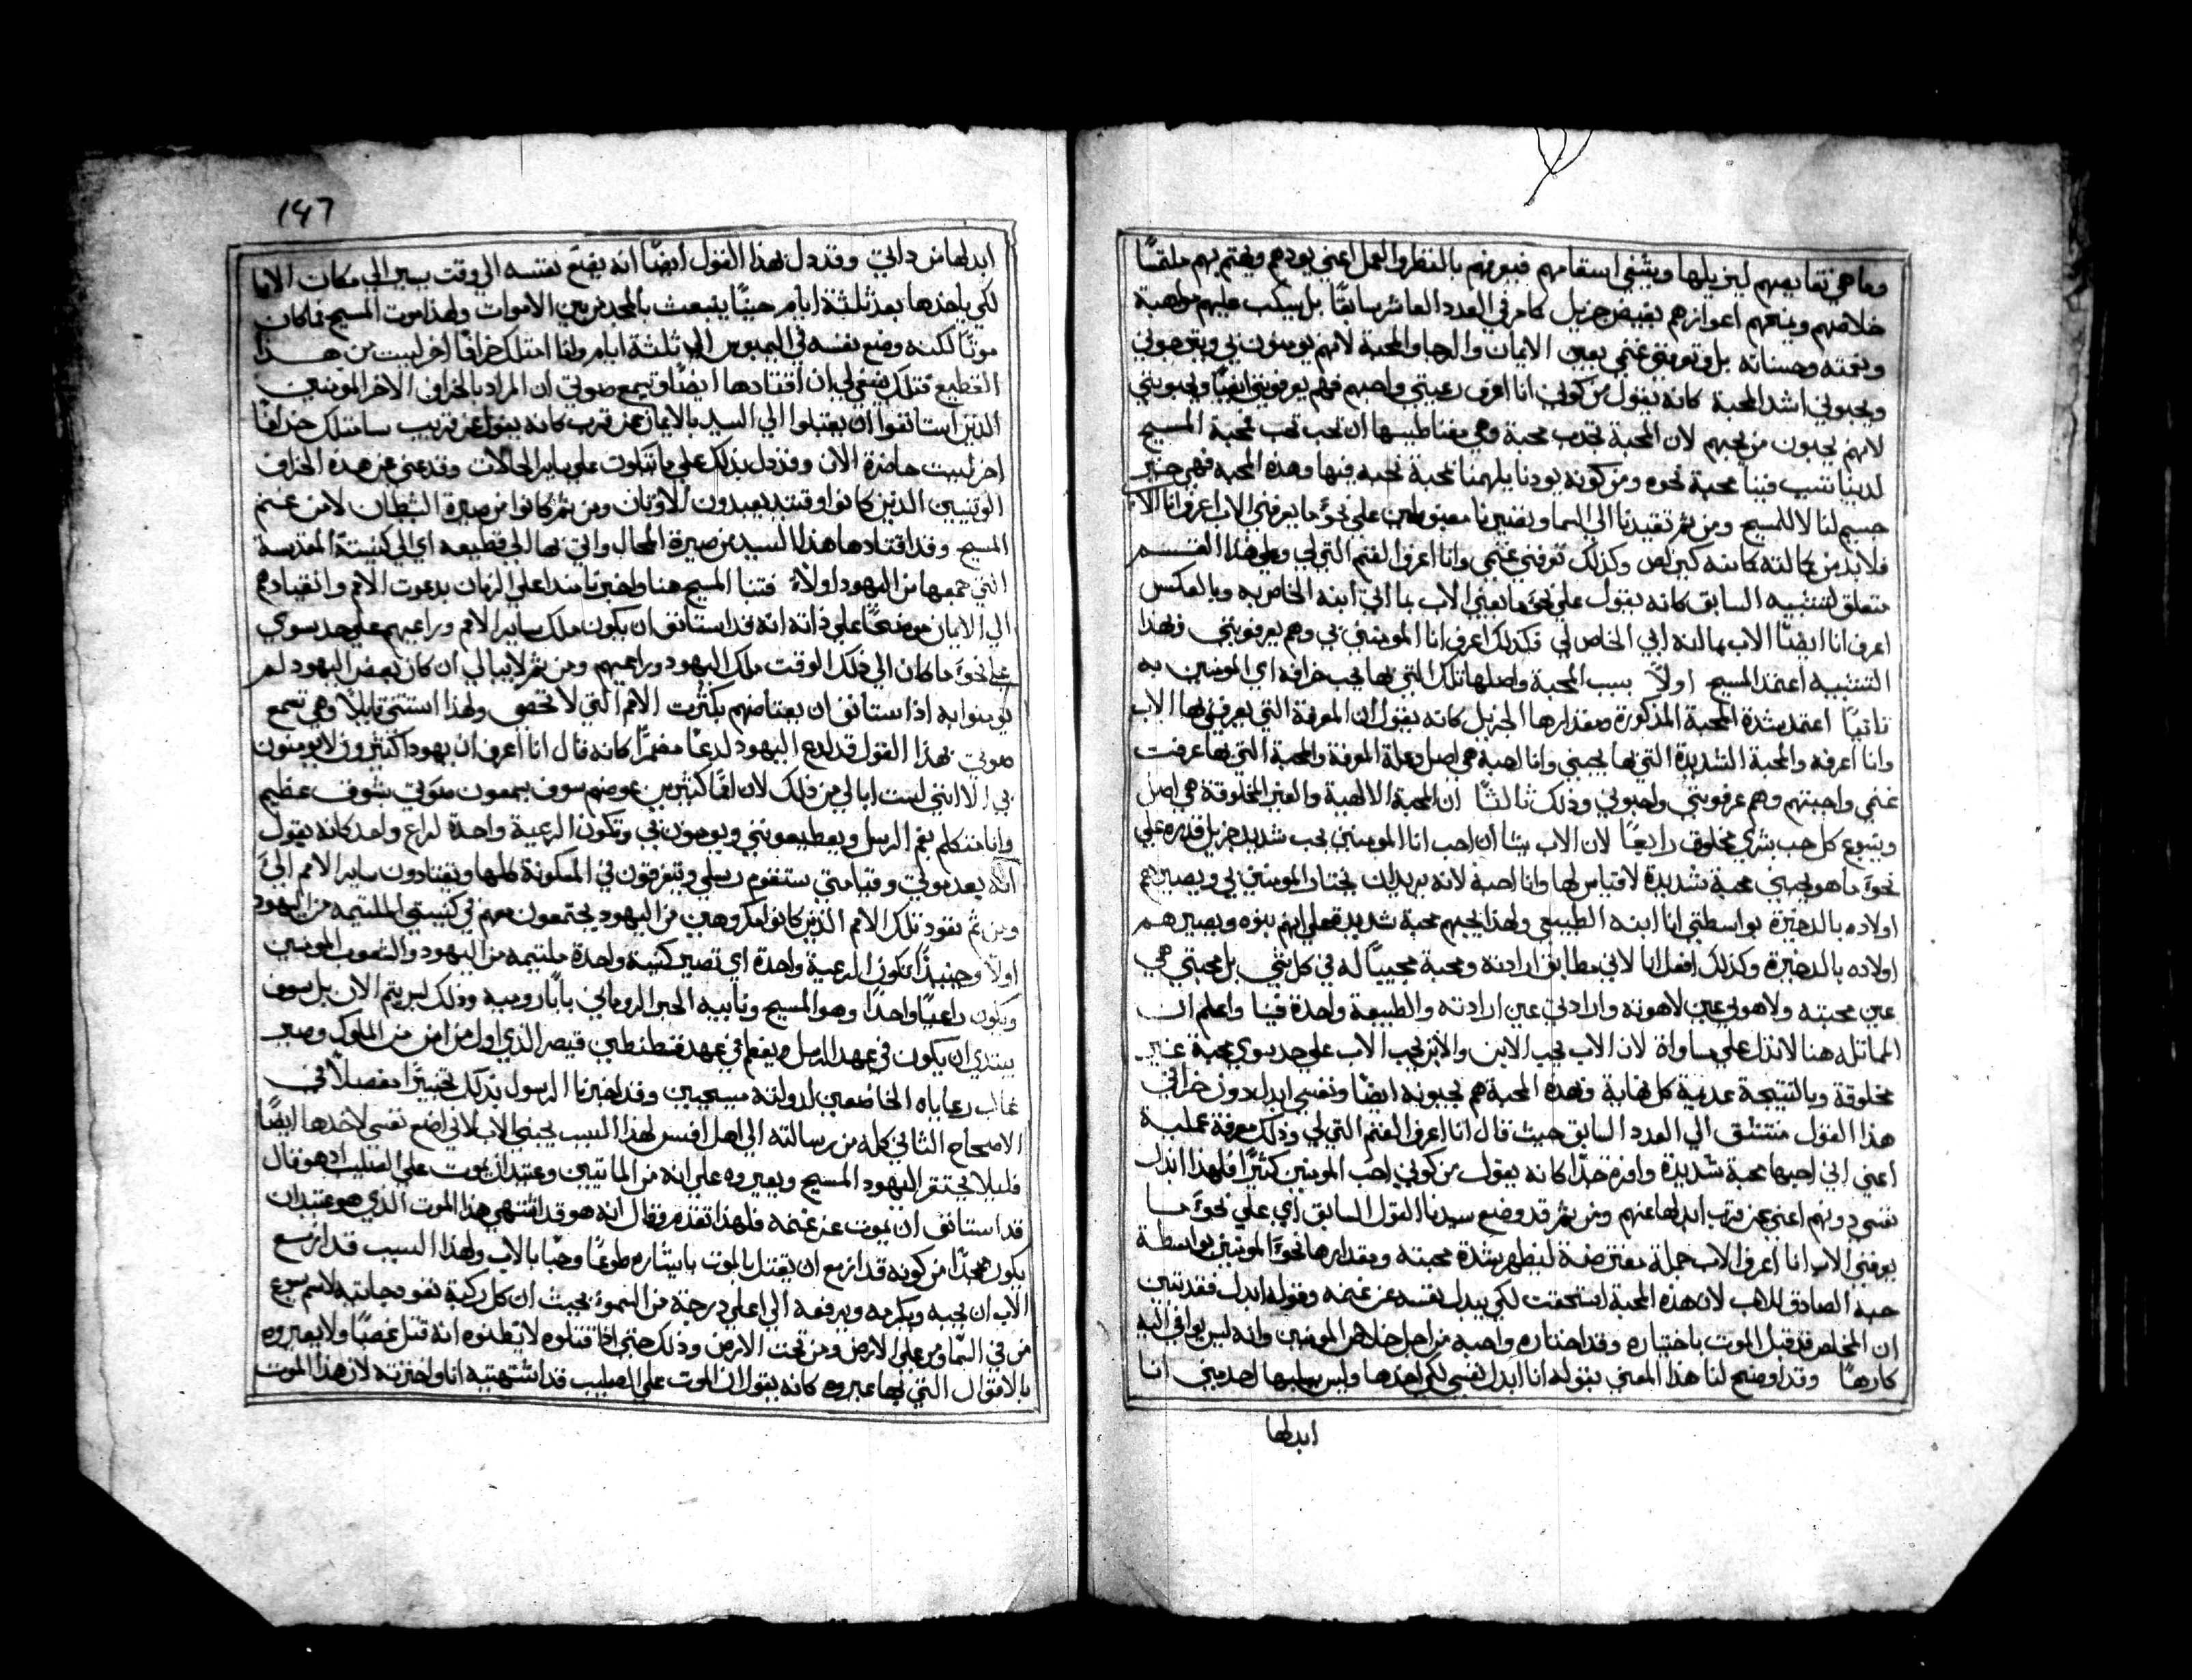 وما هي نقايصهم ليزيلها ويشفي اسقامهم فيعرفهم بالنظر والعمل اعني يودهم ويهتم بهم ملتقسًا
خلاصهم ويمنحهم اعوازهم بفيض جزيل كما مر في العدد العاشر سابقًا بل يسكب عليهم مواهبة
ونعمته وحسناته بل وتعرفني غنمي بعين الايمان والرجا والمحبة لانهم يومنون بي ويترجوني
ويحبوني اشد المحبة كانه يقول من كوني انا اعرف رعيتي واحبهم فهم يعرفونني ايضًا ويحبونني
لانهم يحبون من يحبهم لان المحبة تجذب محبة وهي مغناطيسها ان تحب تحب فمحبة المسيح
لدينا تنشب فينا محبة نحوه ومن كونه يودنا يلهمنا محبة نحبه فيها وهذه المحبة فهي خير
جسيم لنا لا للمسيح ومن ثم تقيدنا الي السما وتغنينا مغبوطين علي نحو ما يعرفني الاب اعرف انا الاب
فلابد من كالته كانه كبر لص وكذلك تعرفني غنمي وانا اعرف الغنم التي لي وهذا القسم
متعلق لتشبيه السابق كانه يقول علي نحو ما يعرفني الاب بما اني ابنه الخاص به وبالعكس
اعرف انا ايضًا الاب بما انه ابي الخاص لي فكذلك اعرف انا المومنين بي وهم يعرفونني فهذا
التشبيه اعتمد المسيح اولًا بسبب المحبة واصلها تلك التي بها يحب خرافه اي المومنين به
ثانيًا اعتمد بشدة المحبة المذكورة ومقدارها الجزيل كانه يقول ان المعرفة التي يعرفني بها الاب
وانا اعرفه والمحبة الشديدة التي بها يحبني وانا احبه هي اصل وعلة المعرفة والمحبة التي بها عرفت
غنمي واحببتهم وهم عرفوني واحبوني وذلك ثالثًا ان المحبة الالهية والغير المخلوقة هي اصل
وينبوع كل حب بشري مخلوق رابعًا لان الاب يشا ان احب انا المومنين بحب شديد جزيل قدره علي
نحو ما هو يحبني محبة شديدة لا قياس لها وانا احبه لانه يريد ان يختار المومنين بي ويصيرهم
اولاده بالذخيرة بواسطتي انا ابنه الطبيعي ولهذا يحبهم محبة شديدة فعلي انهم بنوه ويصيرهم
اولاده بالذخيرة وكذلك افعل انا لاني مطابق ارادته ومحبة محبيبًا له في كل شي بل محبتي هي
عين محبته ولاهوتي عين لاهوته وارادتي عين ارادته والطبيعة واحدة فينا واعلم ان
المماثله هنا لا تدل علي مساواة لان الاب يحب الابن والابن يحب الاب علي حد سوي محبة غير
مخلوقة وبالنتيجة عديمة كل نهاية وبهذه المحبة هم يحبونه ايضًا ونفسي ابدل دون خرافي
هذا القول متسق الي العدد السابق حيث قال انا اعرف الغنم التي لي وذلك معرفة عملية
اعني اني احبها محبة شديدة وافرة جدًا كانه يقول من كوني احب المومنين كثيرًا فلهذا ابدل
نفسي دونهم اعني عن قرب ابدلها عنهم ومن ثم قد وضع سيدنا القول السابق اي علي نحو ما
يعرفني الاب انا اعرف الاب جملة معترضة ليظهر شدة محبته ومقدارها نحو المومنين بواسطة
حبه الصادق للاب لان هذه المحبة استحقت لكي يبدل نفسه عن غنمه وقوله ابدل فقد يتبين
ان المخلص قد قبل الموت باختياره وقد اختاره واحبه من اجل خلاص المومنين وانه ليس يوافي اليه
كارهًا وقد اوضح لنا هذا المعني بقوله انا ابدل نفسي لكي اخذها وليس يسلبها احد مني انا
ابدلها
147
ابدلها من ذاتي وقد دل بهذا القول ايضًا انه يضع نفسه الي وقت يسير الي مكان الابا
لكي ياخذها بعد ثلثة ايام حينًا ينبعث بالمجد من بين الاموات ولهذا موت المسيح فما كان
موتًا لكنه وضع نفسه في اليمبوس الي ثلثة ايام وانا امتلك خرافًا اخر ليست من هذا
القطيع فتلك ينبغي لي ان اقتادها ايضًا وتسمع صوتي ان المراد بالخراف الاخر المومنين
الذين استانفوا ان يقبلوا الي السيد بالايمان عن قرب كانه يقول عن قريب سامتلك خرافًا
اخر ليست حاضرة الان وقد دل بذلك علي ما تكون علي ساير الحالات وقد عني عن هذه الخراف
الوثنيين الذين كانوا وقتيد يعبدون الاوثان ومن ثم كانوا من صيرة الشيطان لا من غنم
المسيح وقد اقتادها هذا السيد من صيرة المحال واتي بها الي قطيعه اي الي كنيسته المقدسة
التي جمعها من اليهود اولًا فتنبا المسيح هنا واخبرنا منذ اعلي الزمان بدعوت الامم وانقيادهم
الي الايمان موضحًا علي ذاته انه قد استانف ان يكون ملك ساير الامم وراعيهم علي حد سوي
علي نحو ما كان الي ذلك الوقت ملك اليهود وراعيهم ومن ثم لا يبالي ان كان بعض اليهود لم
يومنوا به اذا ستانف ان يعتاضهم بكثرت الامم التي لا تحصي ولهذا استتني قايلًا وهي تسمع
صوتي بهذا القول قد لدع اليهود لدعًا مضمرًا كانه قال انا اعرف ان يهود اكثيرون لا يومنون
بي الا انني لست ابالي من ذلك لان اممًا كثيرين عوضهم سوف يسمعون صوتي بشوق عظيم
وانا متكلم بفم الرسل ويعطيعونني ويومنون بي وتكون الرعية واحدة لراع واحد كانه يقول
انه بعد موتي وقيامتي ستقوم رسلي ويتفرقون في المسكونة كلها ويقتادون ساير الامم الي
ومن ثم تقود تلك الامم الذين كانوا مكروهين من اليهود يجتمعون معهم في كنيستي الملتيمه من اليهود
اولًا وحينيذًا تكون الرعية واحدة اي تصير كنيسة واحدة ملتيمه من اليهود والشعوب المومنين
ويكون راعيًا واحدًا وهو المسيح ونايبه الحبر الروماني بابا رومية وذلك ليس يتم الان بل سوف
يبتدي ان يكون في عهد الرسل ويفعم في عهد قسطنطين قيصر الذي اول من امن من الملوك وصير
غالب رعاياه الخاضعين لدولته مسيحيين وقد اخبرنا الرسول بذلك تخبيرًا مفصلًا في
الاصحاح الثاني كله من رسالته الي اهل افسس لهذا السبب يحبني الاب لاني اضع نفسي لاخذها ايضًا
فليلا يحتقر اليهود المسيح ويعيروه علي انه من المايتين وعتيد ان يموت علي الصليب اذ هو قال
قد استانف ان يموت عن غنمه فلهذا تقدم وقال انه هو قد اشتهي هذا الموت الذي هو عتيد ان
يكون ممجدًا من كونه قد ازمع ان يقتبل بالموت بايثاره طوعًا وحبًا بالاب ولهذا السبب قد ازمع
الاب ان يحبه ويكرمه ويرفعه الي اعلي درجة من السمو بحيث ان كل ركبة تقو وجاثيه لاسم يسوع
من في السما ومن علي الارض ومن تحت الارض وذلك حتي اذا قتلوه لا يظنوه انه قتل غصبًا ولا يعيروه
بالاقوال التي بها عيروه كانه يقول ان الموت علي الصليب قد اشتهيته انا واخترته لان هذا الموت